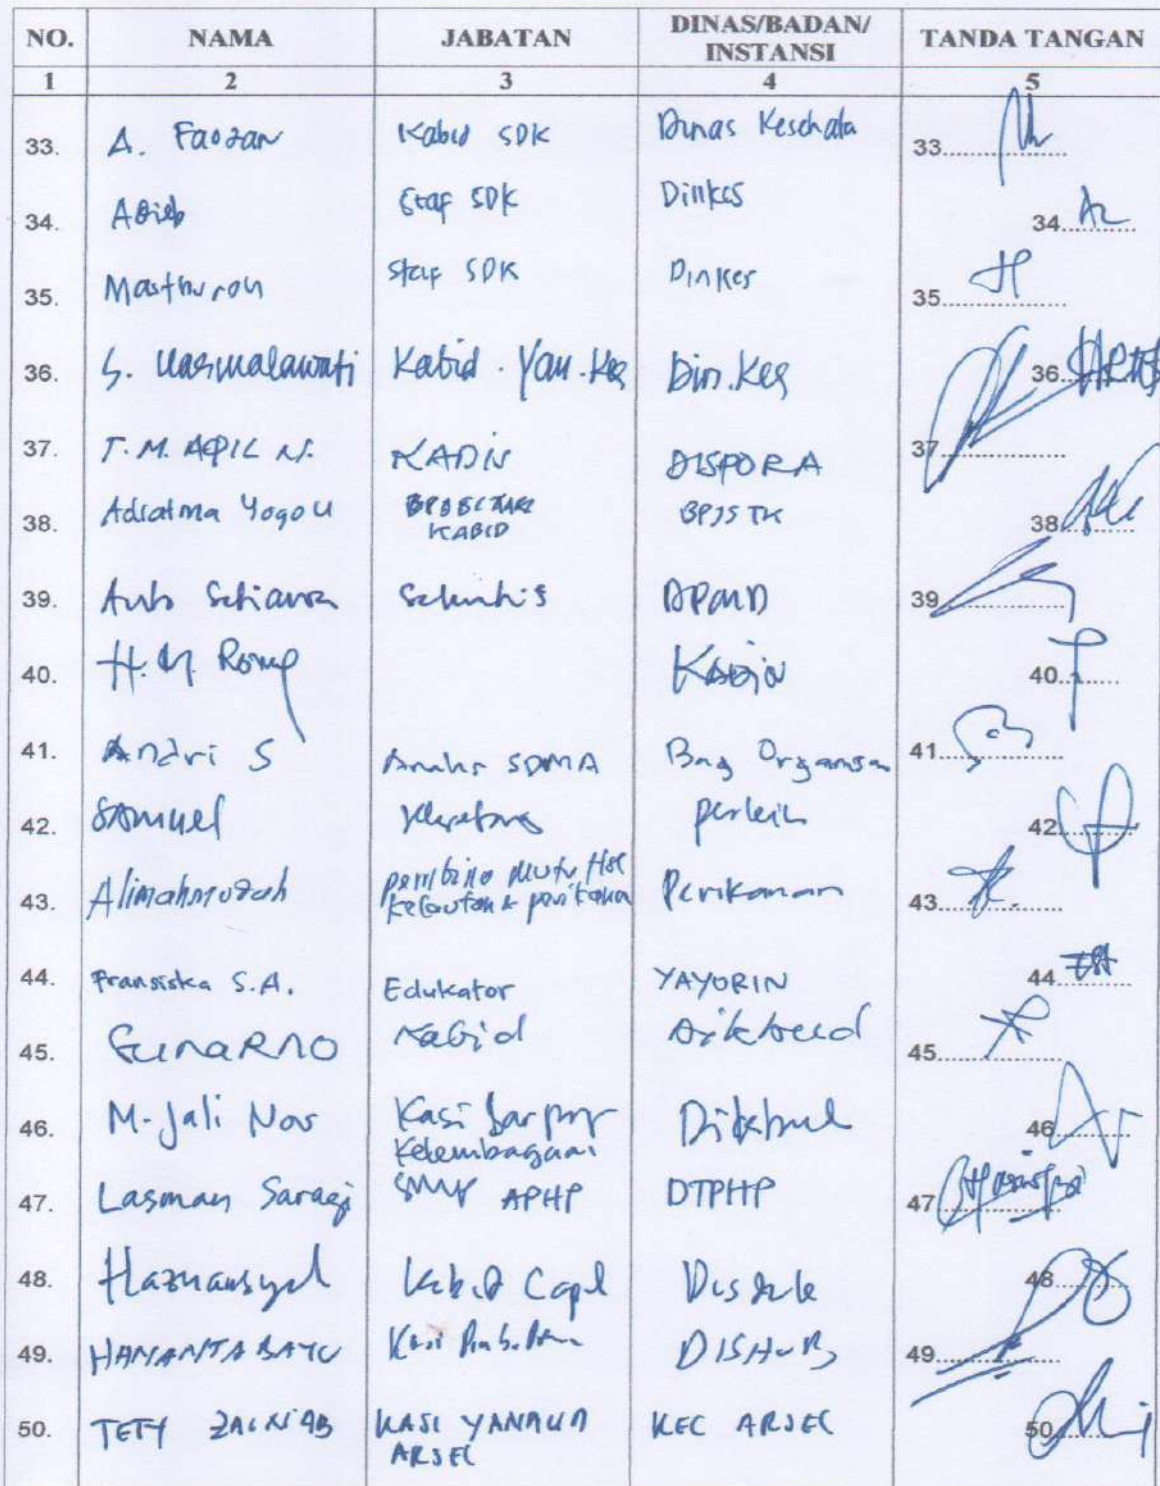 NO. NAMA JABATAN DINAS/BADAN/ INSTANSI TANDA TANGAN
1 2 3 4 5
33. A. Faozan Kabid SDK Dinas Kesehata 33
34. Staf SDK Dinkes 34
35. Masthuroh Staf SDK Dinkes 35
36. S. Kasmalawati Kabid. Yan. Kes Din. Kes 36
37. T. M. AQIL N. KADIS DISPORA 37
38. Adiatma KABID BPJS TK 38
39. Setiawan DPMD 39
40. H. M. Kadis 40
41. Andri S Analis SDMA Bag Organisa 41
42. SAMUEL 42
43. Alimahmudah pembina mutu Hsl kelautan & perikanan Perikanan 43
44. Fransiska S.A. Edukator YAYORIN 44
45. GUNARNO Kabid Dikbud 45
46. M. Jali Nor Kasi Sarpras Kelembagaan Dikbud 46
47. Lasman Saragi APHP DTPHP 47
48. Hazmansyah Kabid Capil 48
49. Kasi DISHUB 49
50. TETY ZAINAB KASI ARSEL KEC ARSEL 50